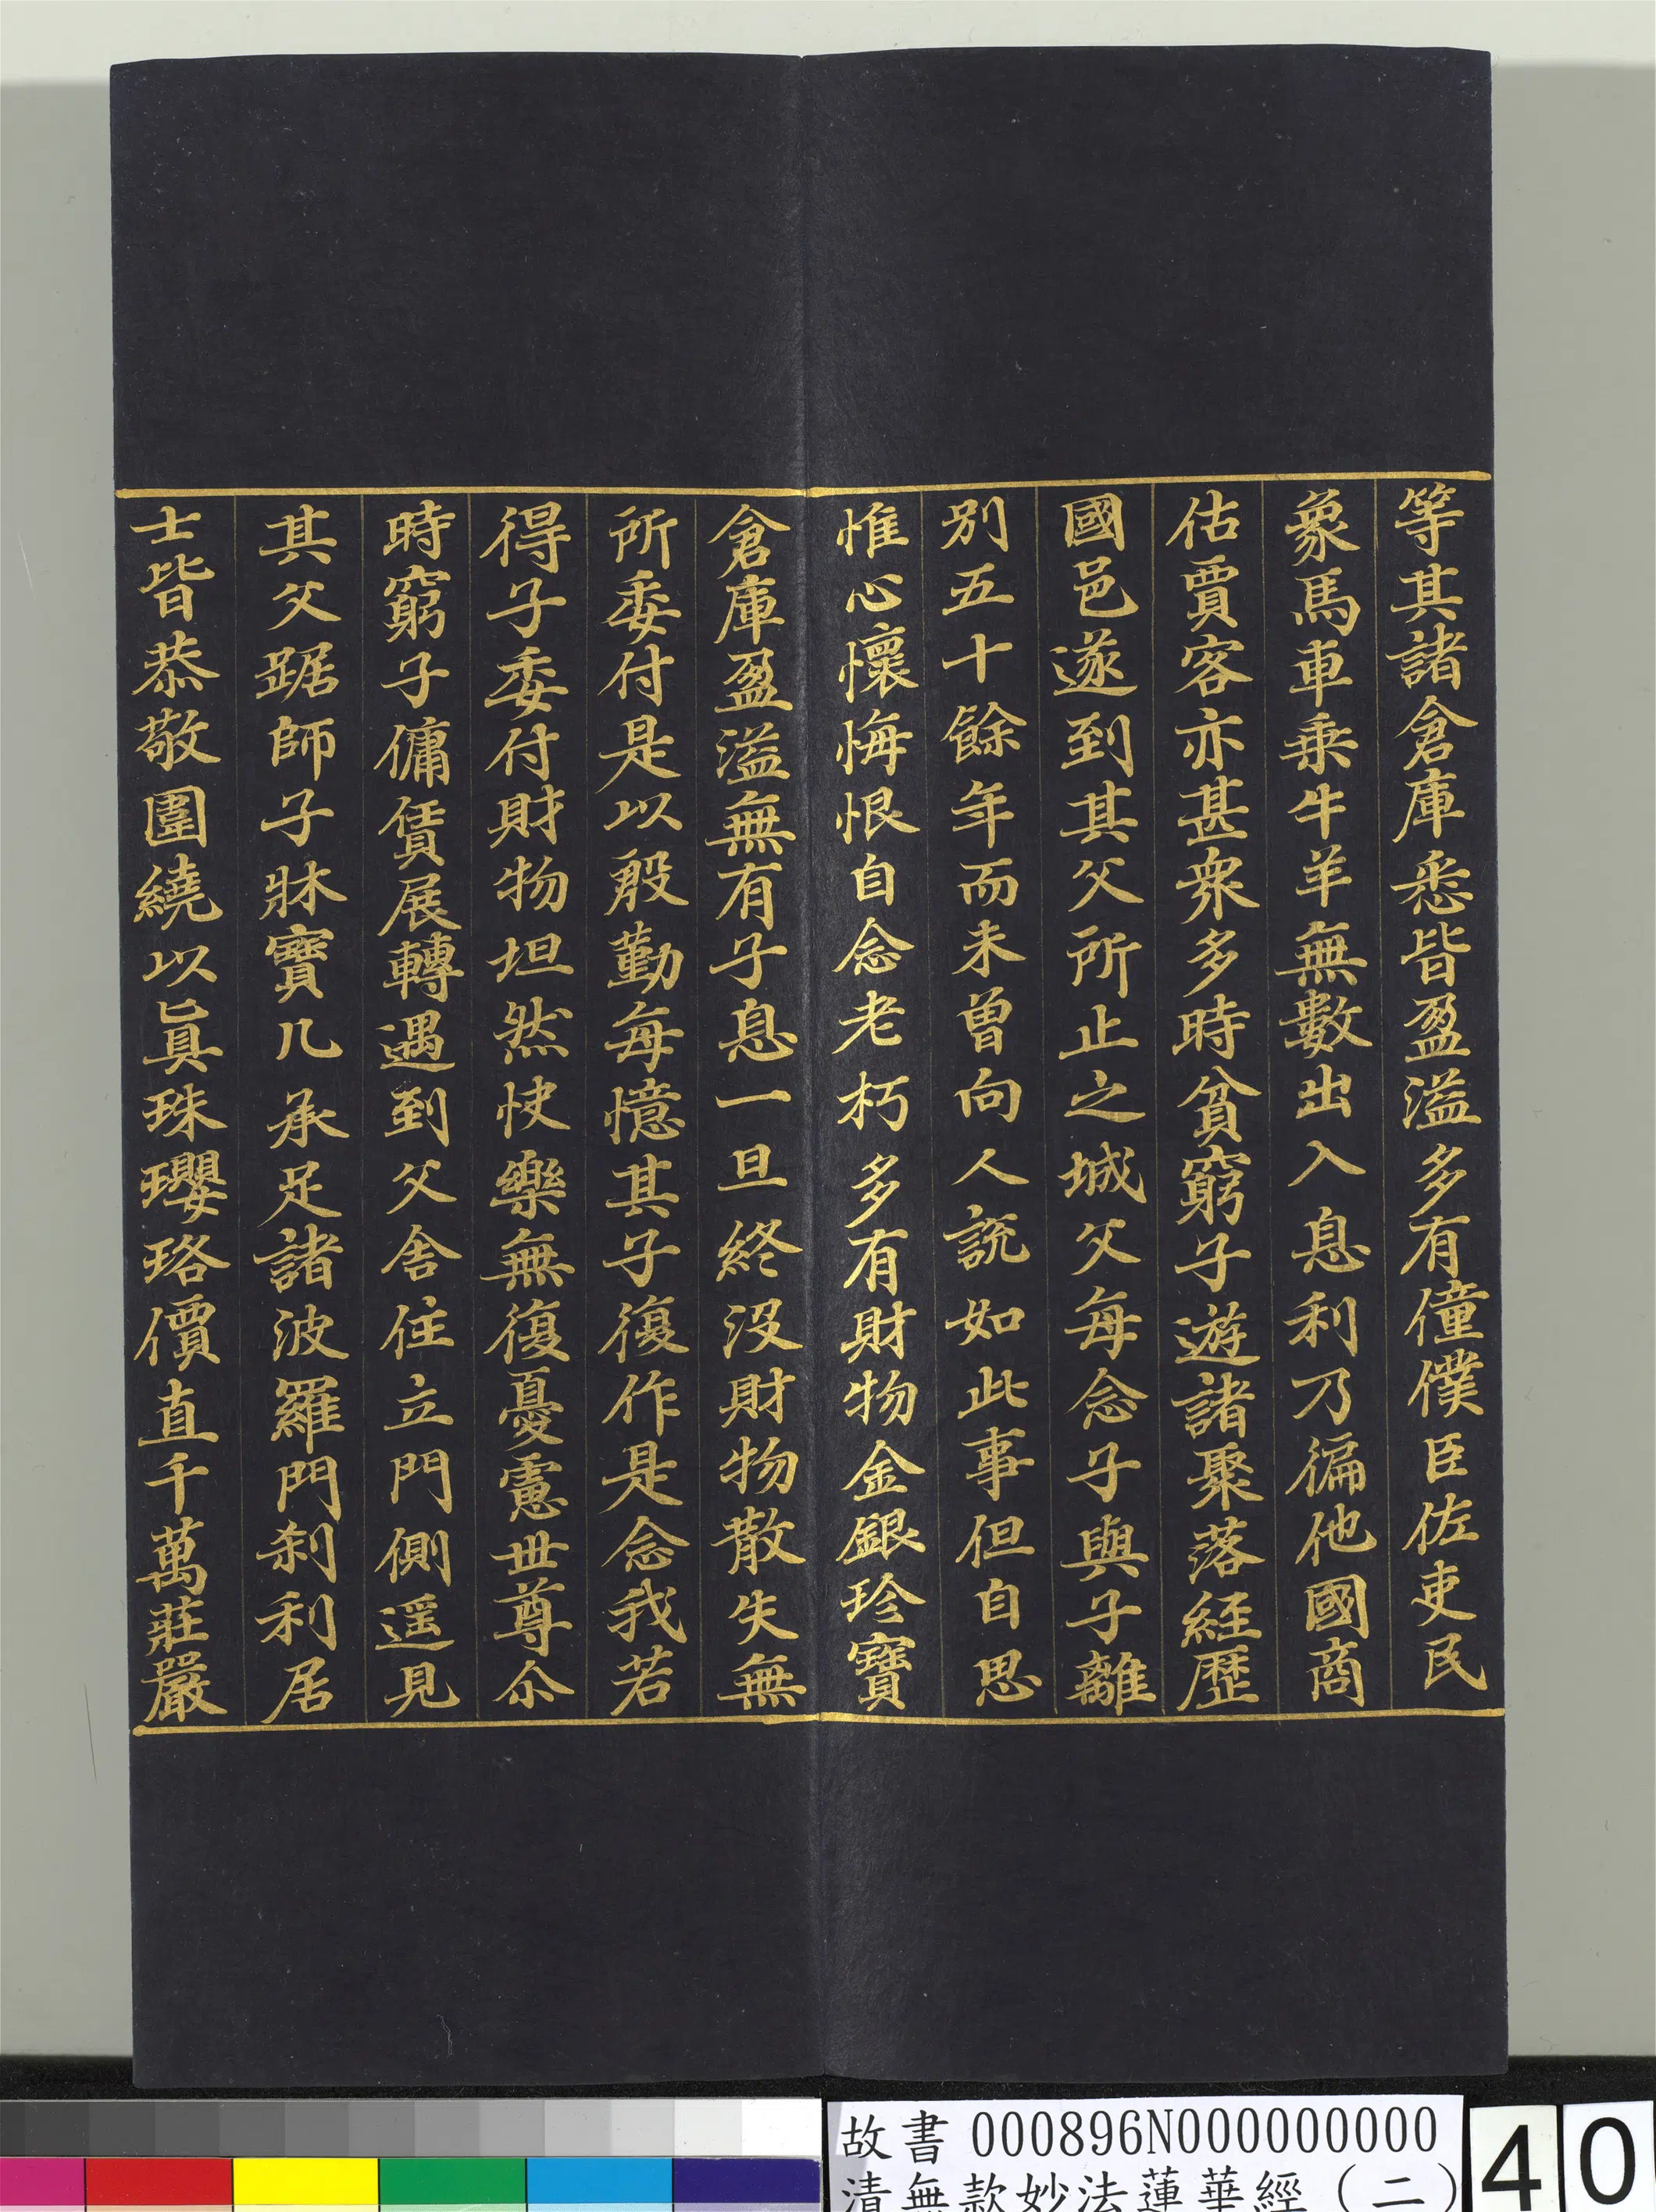 等其諸倉庫悉皆盈溢多有僮僕臣佐吏民
象馬車乗牛羊無數出入息利乃徧他國商
估賈客亦甚衆多時貧窮子遊諸聚落經歷
國邑遂到其父所止之城父每念子與子離
別五十餘年而未曾向人說如此事但自思
惟心懷悔恨自念老朽多有財物金銀珍寶
倉庫盈溢無有子息一旦終沒財物散失無
所委付是以殷勤每憶其子復作是念我若
得子委付財物坦然快樂無復憂慮世尊尒
時窮子傭賃展轉遇到父舍住立門側遥見
其父踞師子牀寶几承足諸波羅門刹利居
士皆恭敬圍繞以眞珠瓔珞價直千萬莊嚴
故書 000896N000000000
清無款妙法蓮華經（二）
40